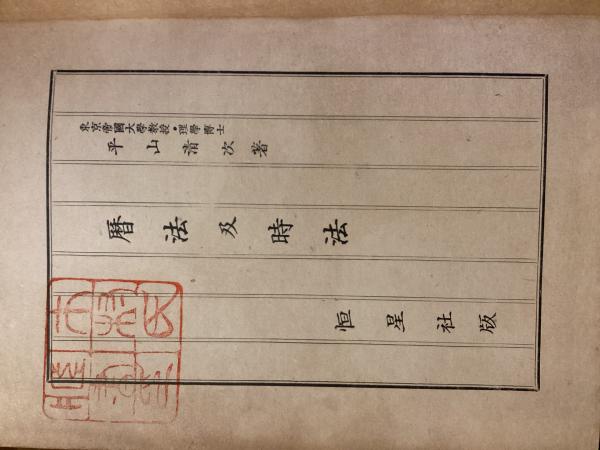 東京帝國大學教授・理學博士
平山清次著
暦法及時法
恒星社版